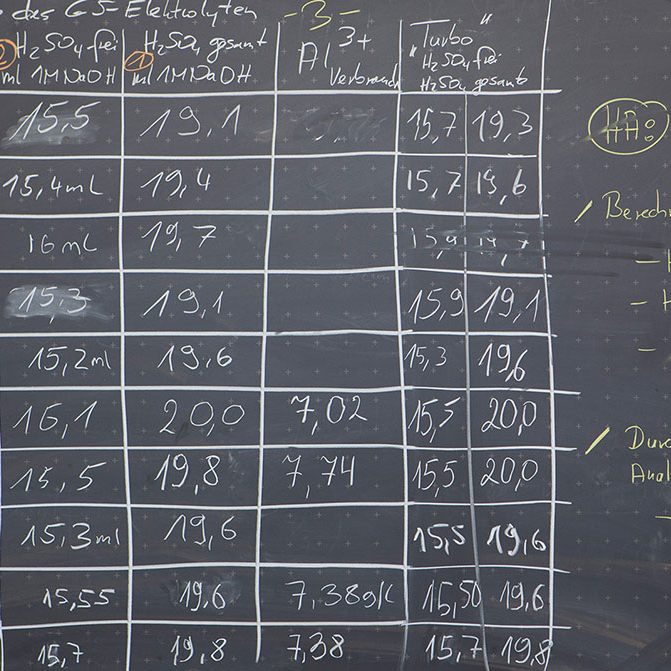 des GS-Elektrolyten -3-
2 H₂SO₄ frei 1 H₂SO₄ gesamt Al³⁺ "Turbo"
ml 1M NaOH ml 1M NaOH Verbrauch H₂SO₄ frei
H₂SO₄ gesamt
15,5 19,1 15,7 19,3
HA:
15,4mL 19,4 15,7 19,6
16mL 19,7 15,9
15,3 19,1 15,9 19,1
15,2ml 19,6 15,3 19,6
16,1 20,0 7,02 15,5 20,0
15,5 19,8 7,74 15,5 20,0
15,3ml 19,6 15,5 19,6
15,55 19,6 7,38g/L 15,50 19,6
15,7 19,8 7,38 15,7 19,8